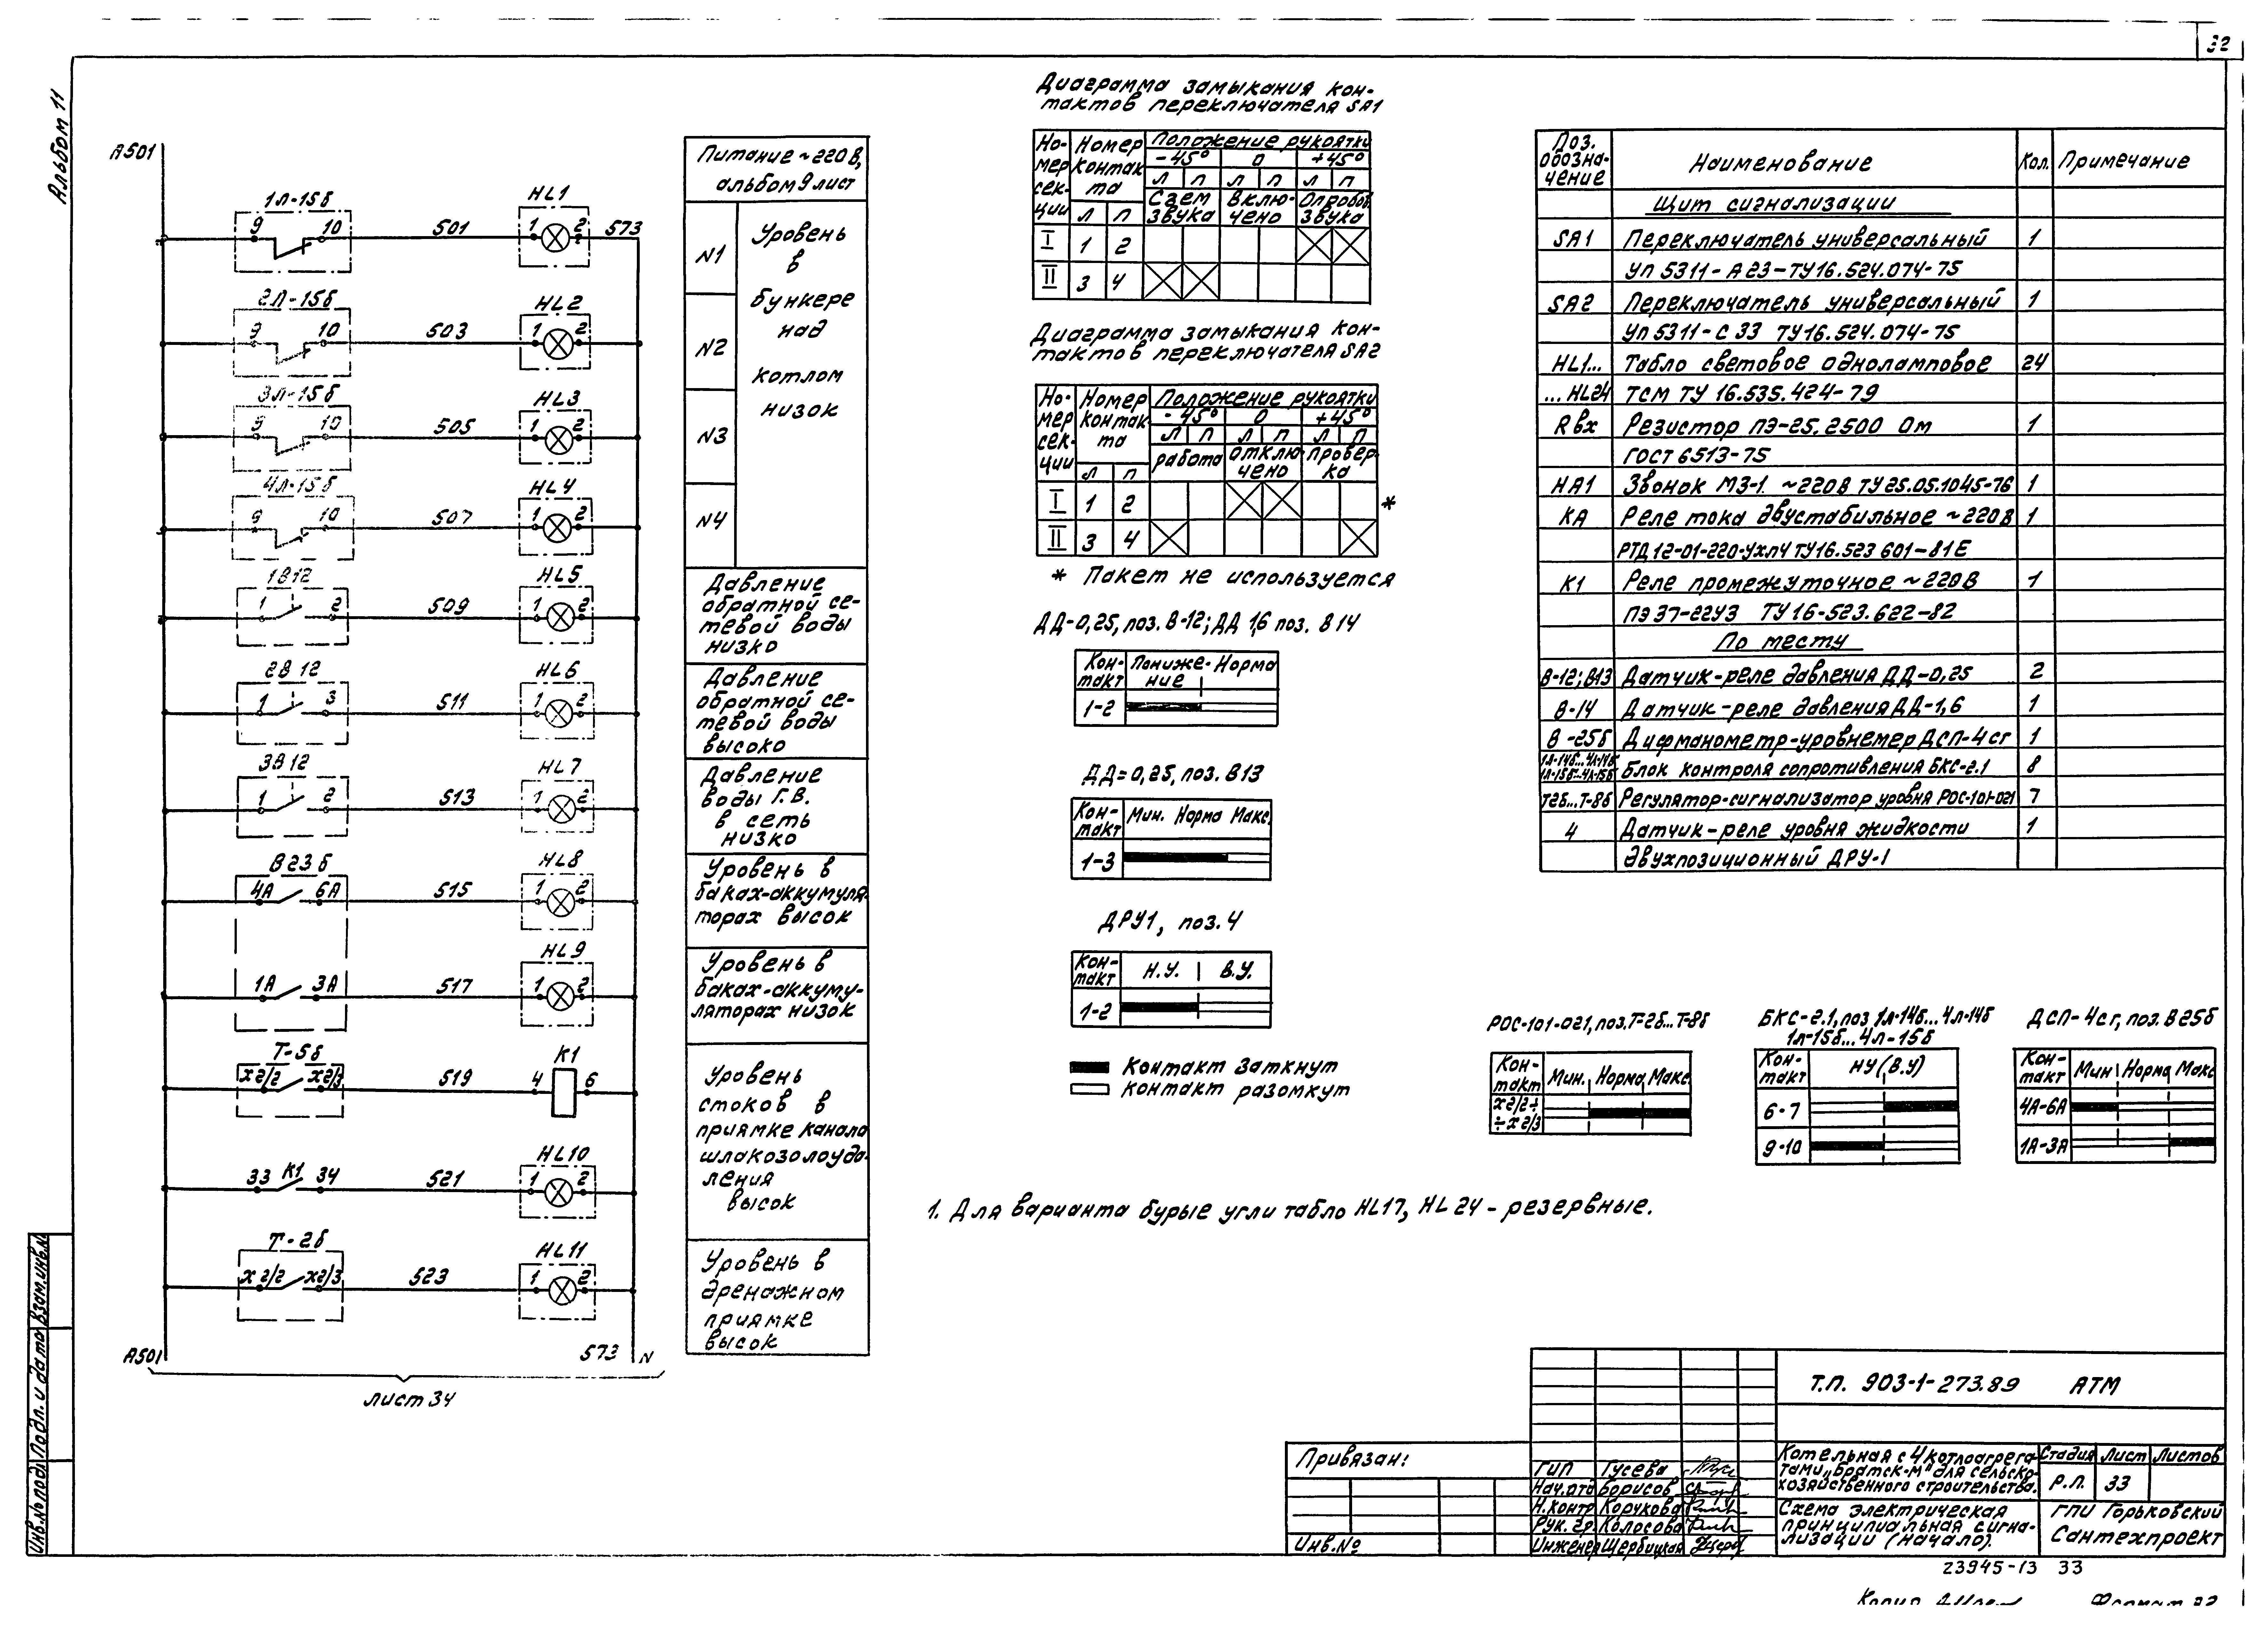 32
Альбом 11
А501
1Л-15б
9 10
501
HL1
1 2
573
2Л-15б
9 10
503
HL2
1 2
3Л-15б
9 10
505
HL3
1 2
4Л-15б
9 10
507
HL4
1 2
1В12
1 2
509
HL5
1 2
2В12
1 3
511
HL6
1 2
3В12
1 2
513
HL7
1 2
В23б
4А 6А
515
HL8
1 2
1А 3А
517
HL9
1 2
Т-5б
х2/2 х2/3
519
К1
4 6
33 К1 34
521
HL10
1 2
Т-2б
х2/2 х2/3
523
HL11
1 2
А501
573 N
лист 34
Питание ~220В,
альбом 9 лист
N1
N2
N3
N4
Уровень
в
бункере
над
котлом
низок
Давление
обратной се-
тевой воды
низко
Давление
обратной се-
тевой воды
высоко
Давление
воды Г.В.
в сеть
низко
Уровень в
баках-аккумуля-
торах высок
Уровень в
баках-аккуму-
ляторах низок
Уровень
стоков в
приямке канала
шлакозолоуда-
ления
высок
Уровень в
дренажном
приямке
высок
Диаграмма замыкания кон-
тактов переключателя SA1
Но-
мер
сек-
ции
Номер
контак-
та
Л П
Положение рукоятки
-45° 0 +45°
Л П Л П Л П
Съем
звука
Вклю-
чено
Опробов.
звука
I 1 2
II 3 4
Диаграмма замыкания кон-
тактов переключателя SA2
Но-
мер
сек-
ции
Номер
контак-
та
Л П
Положение рукоятки
-45° 0 +45°
Л П Л П Л П
работа
отклю-
чено
провер-
ка
I 1 2 *
II 3 4
* Пакет не используется
ДД-0,25, поз. В-12; ДД 1,6 поз. В14
Кон-
такт
Пониже-
ние
Норма
1-2
ДД=0,25, поз. В13
Кон-
такт
Мин. Норма Макс.
1-3
ДРУ1, поз. 4
Кон-
такт
Н.У. В.У.
1-2
Контакт замкнут
контакт разомкнут
Поз.
обозна-
чение
Наименование
Кол.
Примечание
Щит сигнализации
SA1 Переключатель универсальный 1
УП 5311-А23-ТУ16.524.074-75
SA2 Переключатель универсальный 1
УП 5311-С33 ТУ16.524.074-75
HL1... Табло световое одноламповое 24
...HL24 ТСМ ТУ 16.535.424-79
Rвх Резистор ПЭ-25.2500 Ом 1
ГОСТ 6513-75
НА1 Звонок МЗ-1 ~220В ТУ25.05.1045-76 1
КА Реле тока двустабильное ~220В 1
РТД12-01-220-УХЛ4 ТУ16.523 601-81Е
К1 Реле промежуточное ~220В 1
ПЭ37-22У3 ТУ16-523.622-82
По месту
В-12; В13 Датчик-реле давления ДД-0,25 2
В-14 Датчик-реле давления ДД-1,6 1
В-25б Дифманометр-уровнемер ДСП-4сг 1
1Л-14б...4Л-14б
1Л-15б...4Л-15б
Блок контроля сопротивления БКС-2.1 8
Т2б...Т-8б Регулятор-сигнализатор уровня РОС-101-021 7
4 Датчик-реле уровня жидкости 1
двухпозиционный ДРУ-1
РОС-101-021, поз.Т-2б...Т-8б
Кон-
такт
Мин. Норма Макс.
х2/2÷
÷х2/3
БКС-2.1, поз 1Л-14б...4Л-14б
1Л-15б...4Л-15б
Кон-
такт
НУ (В.У)
6-7
9-10
ДСП-4сг, поз. В25б
Кон-
такт
Мин Норма Макс
4А-6А
1А-3А
1. Для варианта бурые угли табло HL17, HL24 - резервные.
Т.П. 903-1-273.89 АТМ
Привязан:
Инв.№
ГИП Гусева
Нач.отд Борисов
Н.контр Корукова
Рук. гр. Колосова
Инженер Щербицкая
Котельная с 4 котлоагрега-
тами „Братск-М" для сельско-
хозяйственного строительства.
Стадия Лист Листов
Р.П. 33
Схема электрическая
принципиальная сигна-
лизации (начало).
ГПИ Горьковский
Сантехпроект
23945-13 33
Инв.№ подл. Подл. и дата Взам.инв.№